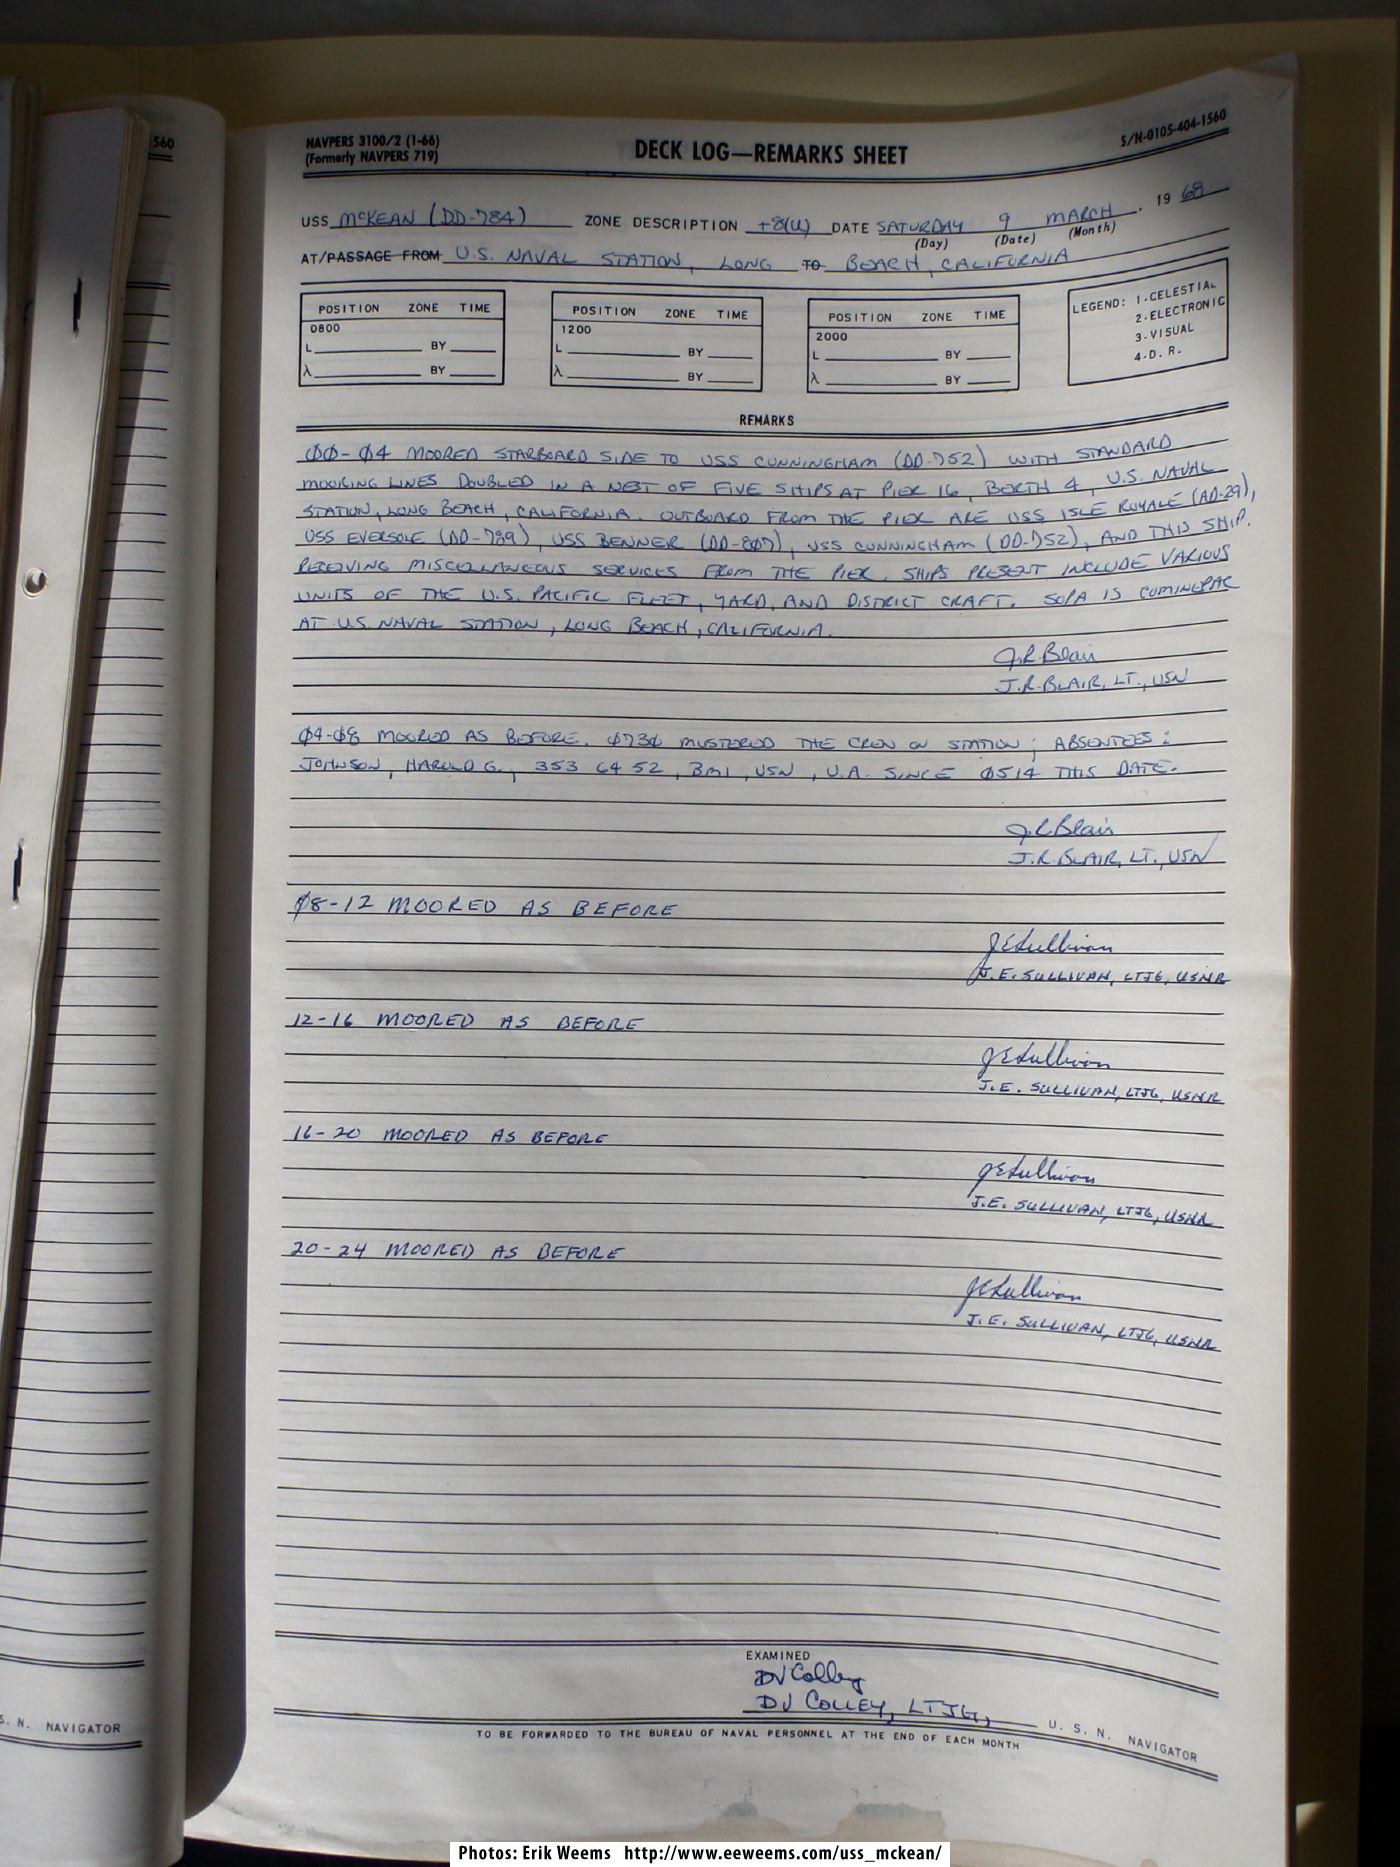 1560
NAVPERS 3100/2 (1-66)
(Formerly NAVPERS 719)
DECK LOG—REMARKS SHEET
S/N-0105-404-1560
USS McKEAN (DD-784) ZONE DESCRIPTION +8(U) DATE SATURDAY 9 MARCH, 19 68
(Day) (Date) (Month)
AT/PASSAGE FROM U.S. NAVAL STATION, LONG TO BEACH, CALIFORNIA
POSITION ZONE TIME
0800
L BY
λ BY
POSITION ZONE TIME
1200
L BY
λ BY
POSITION ZONE TIME
2000
L BY
λ BY
LEGEND: 1-CELESTIAL
2-ELECTRONIC
3-VISUAL
4-D. R.
REMARKS
00-04 MOORED STARBOARD SIDE TO USS CUNNINGHAM (DD-752) WITH STANDARD
MOORING LINES DOUBLED IN A NEST OF FIVE SHIPS AT PIER 16, BERTH 4, U.S. NAVAL
STATION, LONG BEACH, CALIFORNIA. OUTBOARD FROM THE PIER ARE USS ISLE ROYALE (AD-29),
USS EVERSOLE (DD-789), USS BENNER (DD-807), USS CUNNINGHAM (DD-752), AND THIS SHIP.
RECEIVING MISCELLANEOUS SERVICES FROM THE PIER. SHIPS PRESENT INCLUDE VARIOUS
UNITS OF THE U.S. PACIFIC FLEET, YARD, AND DISTRICT CRAFT. SOPA IS COMINEPAC
AT U.S. NAVAL STATION, LONG BEACH, CALIFORNIA.
J.R. Blair
J.R. BLAIR, LT., USN
04-08 MOORED AS BEFORE. 0730 MUSTERED THE CREW ON STATION; ABSENTEES:
JOHNSON, HAROLD G., 353 64 52, BM1, USN, U.A. SINCE 0514 THIS DATE.
J R Blair
J.R. BLAIR, LT., USN
08-12 MOORED AS BEFORE
J E Sullivan
J.E. SULLIVAN, LTJG, USNR
12-16 MOORED AS BEFORE
J E Sullivan
J.E. SULLIVAN, LTJG, USNR
16-20 MOORED AS BEFORE
J E Sullivan
J.E. SULLIVAN, LTJG, USNR
20-24 MOORED AS BEFORE
J E Sullivan
J.E. SULLIVAN, LTJG, USNR
EXAMINED
DJ Colley
DJ COLLEY, LTJG, U. S. N. NAVIGATOR
S. N. NAVIGATOR
TO BE FORWARDED TO THE BUREAU OF NAVAL PERSONNEL AT THE END OF EACH MONTH
Photos: Erik Weems http://www.eeweems.com/uss_mckean/